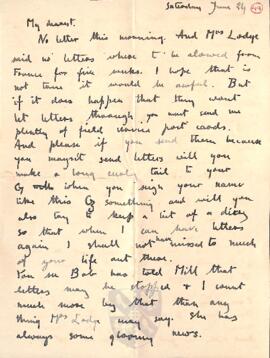 Saturday June 24
My dearest.
No letter this morning. And Mrs Lodge
said no letters where to be allowed from
France for five weeks. I hope that is
not true it would be awful. But
if it does happen that they wont
let letters through, you must send me
plenty of field service post cards.
And please if you send them because
you mayn't send letters will you
make a long curly tail to your
when you sign your name
like this something and will you
also try to keep a bit of a diary
so that when I can have letters
again I shall not have missed to much
of your life out there.
You Bob has told Mill that
letters may be stopped & I count
much more by that than any
thing Mrs Lodge may say. She has
always some gloomy news.